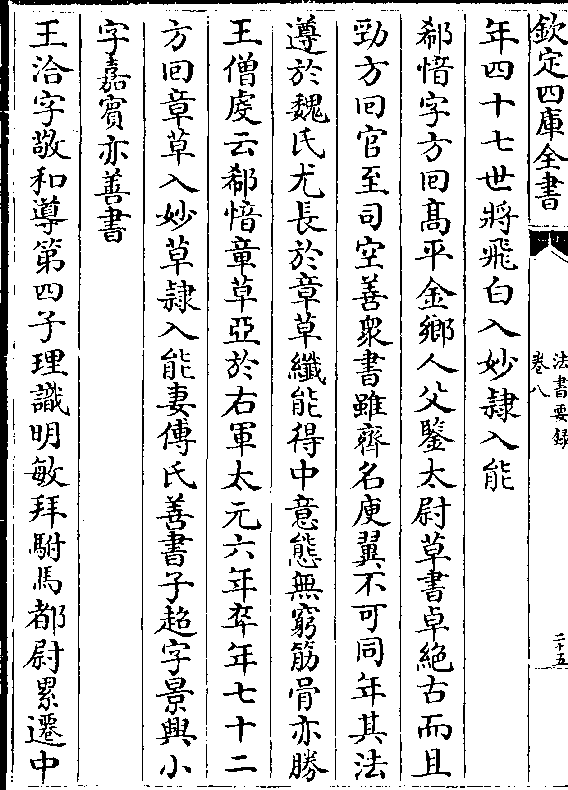 欽定四庫全書
法書要録
卷八
二十五
年四十七世將飛白入妙隷入能
郗愔字方回髙平金鄉人父鑒太尉草書卓絶古而且
勁方回官至司空善衆書雖齊名庾翼不可同年其法
遵於魏氏尤長於章草纎能得中意態無窮筋骨亦勝
王僧虔云郗愔章草亞於右軍太元六年卒年七十二
方回章草入妙草隷入能妻傅氏善書子超字景興小
字嘉賓亦善書
王洽字敬和導第四子理識明敏拜駙馬都尉累遷中